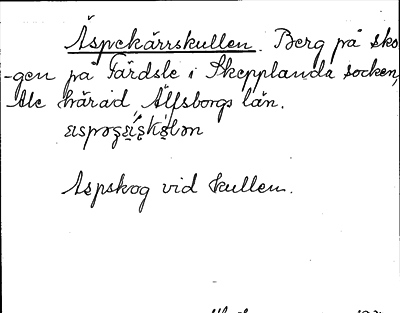 Äspekärrskullen. Berg på sko-
-gen på Färdsle i Skepplanda socken,
Ale härad, Älfsborgs län.
Aspskog vid kullen.